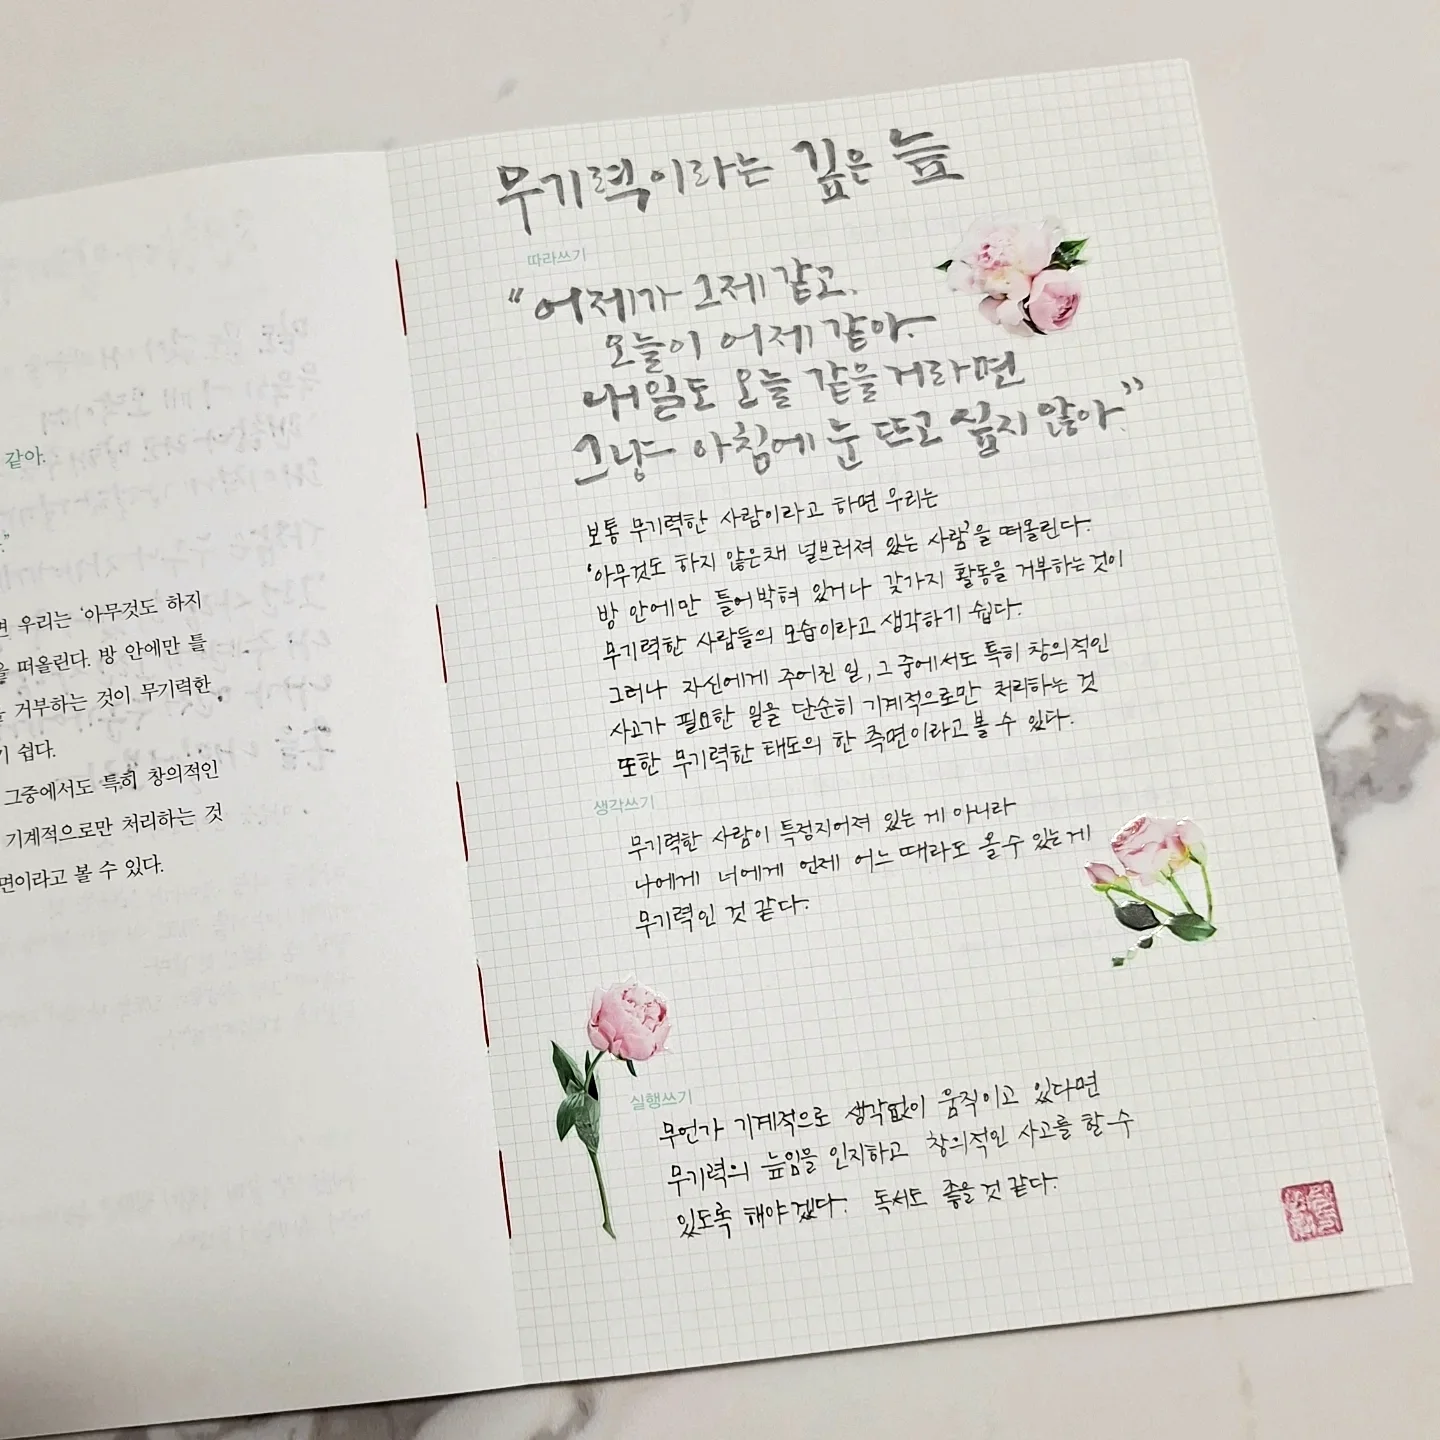 같아.
면 우리는 ‘아무것도 하지
을 떠올린다. 방 안에만 틀
거부하는 것이 무기력한
기 쉽다.
그중에서도 특히 창의적인
기계적으로만 처리하는 것
면이라고 볼 수 있다.
무기력이라는 깊은 늪
따라쓰기
“어제가 그제 같고,
오늘이 어제 같아.
내일도 오늘 같을 거라면
그냥 아침에 눈 뜨고 싶지 않아.”
보통 무기력한 사람이라고 하면 우리는
‘아무것도 하지 않은채 널브러져 있는 사람’을 떠올린다.
방 안에만 틀어박혀 있거나 갖가지 활동을 거부하는것이
무기력한 사람들의 모습이라고 생각하기 쉽다.
그러나 자신에게 주어진 일, 그 중에서도 특히 창의적인
사고가 필요한 일을 단순히 기계적으로만 처리하는 것
또한 무기력한 태도의 한 측면이라고 볼 수 있다.
생각쓰기
무기력한 사람이 특정지어져 있는 게 아니라
나에게 너에게 언제 어느때라도 올수 있는게
무기력인 것 같다.
실행쓰기
무언가 기계적으로 생각없이 움직이고 있다면
무기력의 늪임을 인지하고 창의적인 사고를 할 수
있도록 해야겠다. 독서도 좋을것 같다.